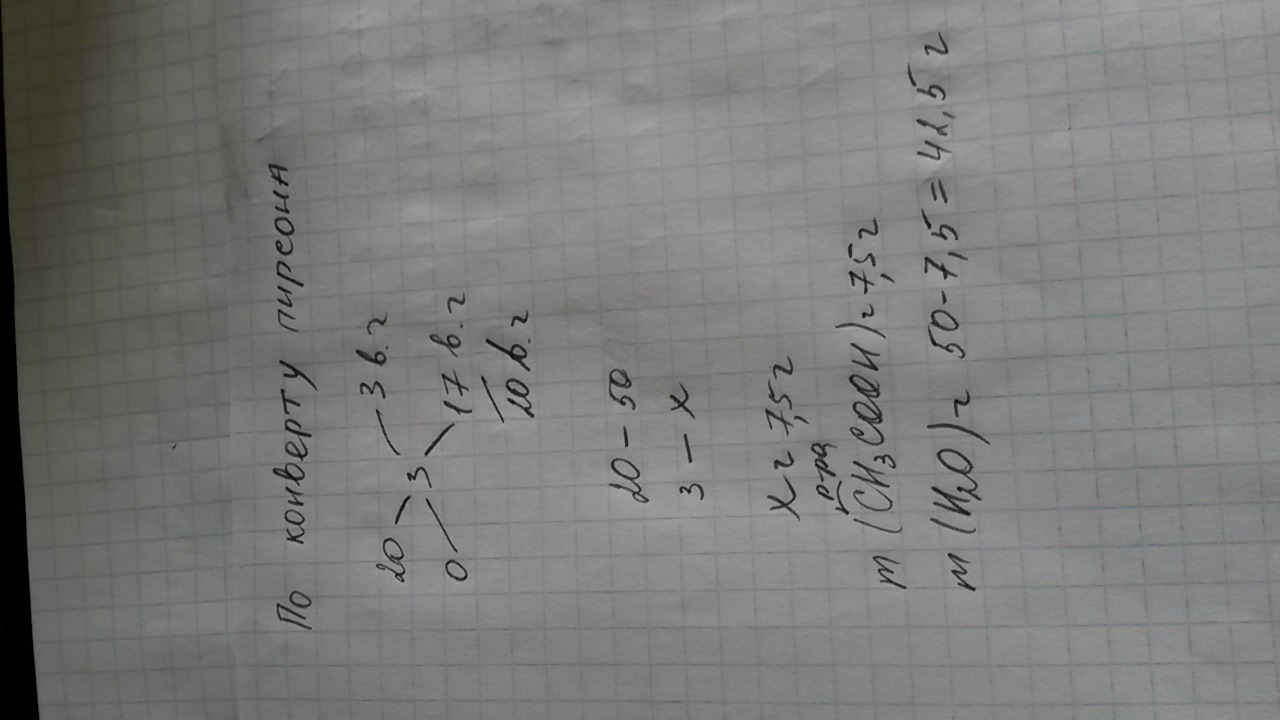 По конверту пирсона
20 3 в. г
3
0 17 в. г
20 в. г
20 – 50
3 – x
x = 7,5 г
р-ра
m (CH3COOH) = 7,5 г
m (H2O) = 50 - 7,5 = 42,5 г